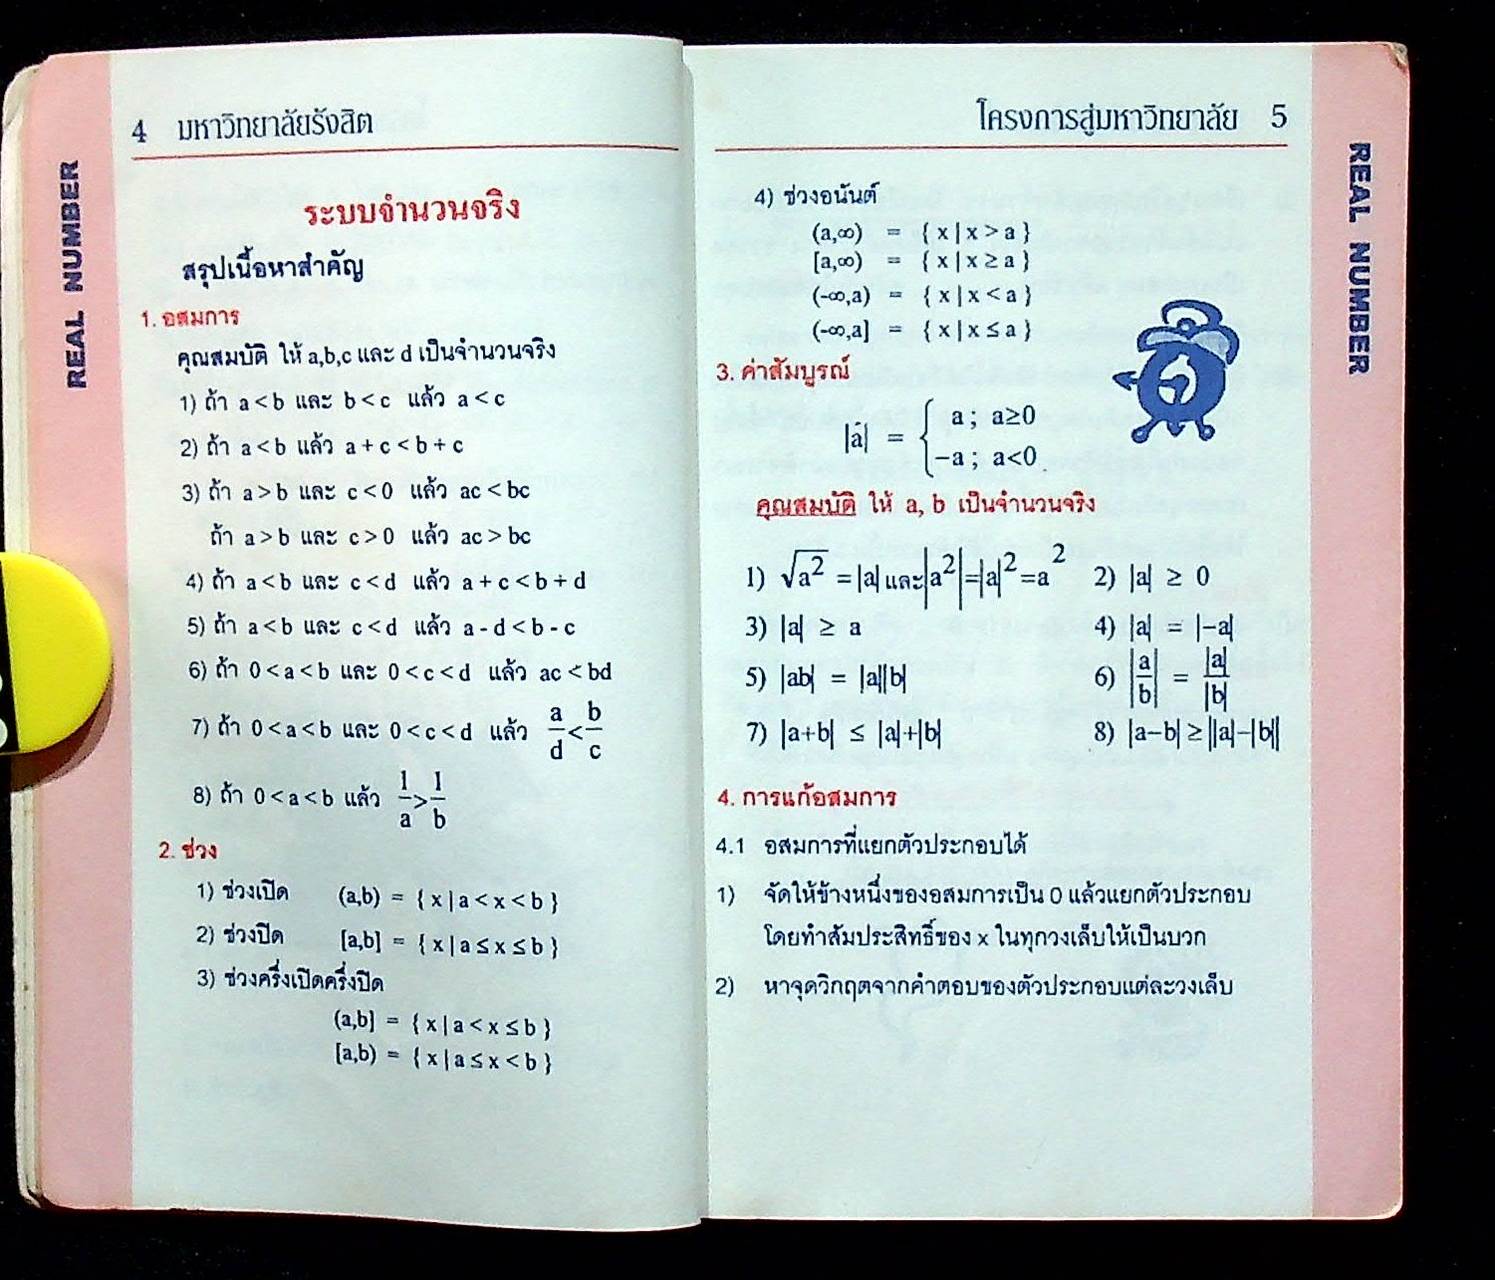 REAL NUMBER
4 มหาวิทยาลัยรังสิต
ระบบจำนวนจริง
สรุปเนื้อหาสำคัญ
1. อสมการ
คุณสมบัติ ให้ a,b,c และ d เป็นจำนวนจริง
1) ถ้า a < b และ b < c แล้ว a < c
2) ถ้า a < b แล้ว a + c < b + c
3) ถ้า a > b และ c < 0 แล้ว ac < bc
ถ้า a > b และ c > 0 แล้ว ac > bc
4) ถ้า a < b และ c < d แล้ว a + c < b + d
5) ถ้า a < b และ c < d แล้ว a - d < b - c
6) ถ้า 0 < a < b และ 0 < c < d แล้ว ac < bd
7) ถ้า 0 < a < b และ 0 < c < d แล้ว a/d < b/c
8) ถ้า 0 < a < b แล้ว 1/a > 1/b
2. ช่วง
1) ช่วงเปิด (a,b) = { x | a < x < b }
2) ช่วงปิด [a,b] = { x | a ≤ x ≤ b }
3) ช่วงครึ่งเปิดครึ่งปิด
(a,b] = { x | a < x ≤ b }
[a,b) = { x | a ≤ x < b }
โครงการสู่มหาวิทยาลัย 5
REAL NUMBER
4) ช่วงอนันต์
(a,∞) = { x | x > a }
[a,∞) = { x | x ≥ a }
(-∞,a) = { x | x < a }
(-∞,a] = { x | x ≤ a }
3. ค่าสัมบูรณ์
|a| = { a ; a≥0
−a ; a<0
คุณสมบัติ ให้ a, b เป็นจำนวนจริง
1) √a² = |a| และ |a²| = |a|² = a² 2) |a| ≥ 0
3) |a| ≥ a 4) |a| = |−a|
5) |ab| = |a||b| 6) |a/b| = |a|/|b|
7) |a+b| ≤ |a|+|b| 8) |a−b| ≥ ||a|−|b||
4. การแก้อสมการ
4.1 อสมการที่แยกตัวประกอบได้
1) จัดให้ข้างหนึ่งของอสมการเป็น 0 แล้วแยกตัวประกอบ
โดยทำสัมประสิทธิ์ของ x ในทุกวงเล็บให้เป็นบวก
2) หาจุดวิกฤตจากคำตอบของตัวประกอบแต่ละวงเล็บ